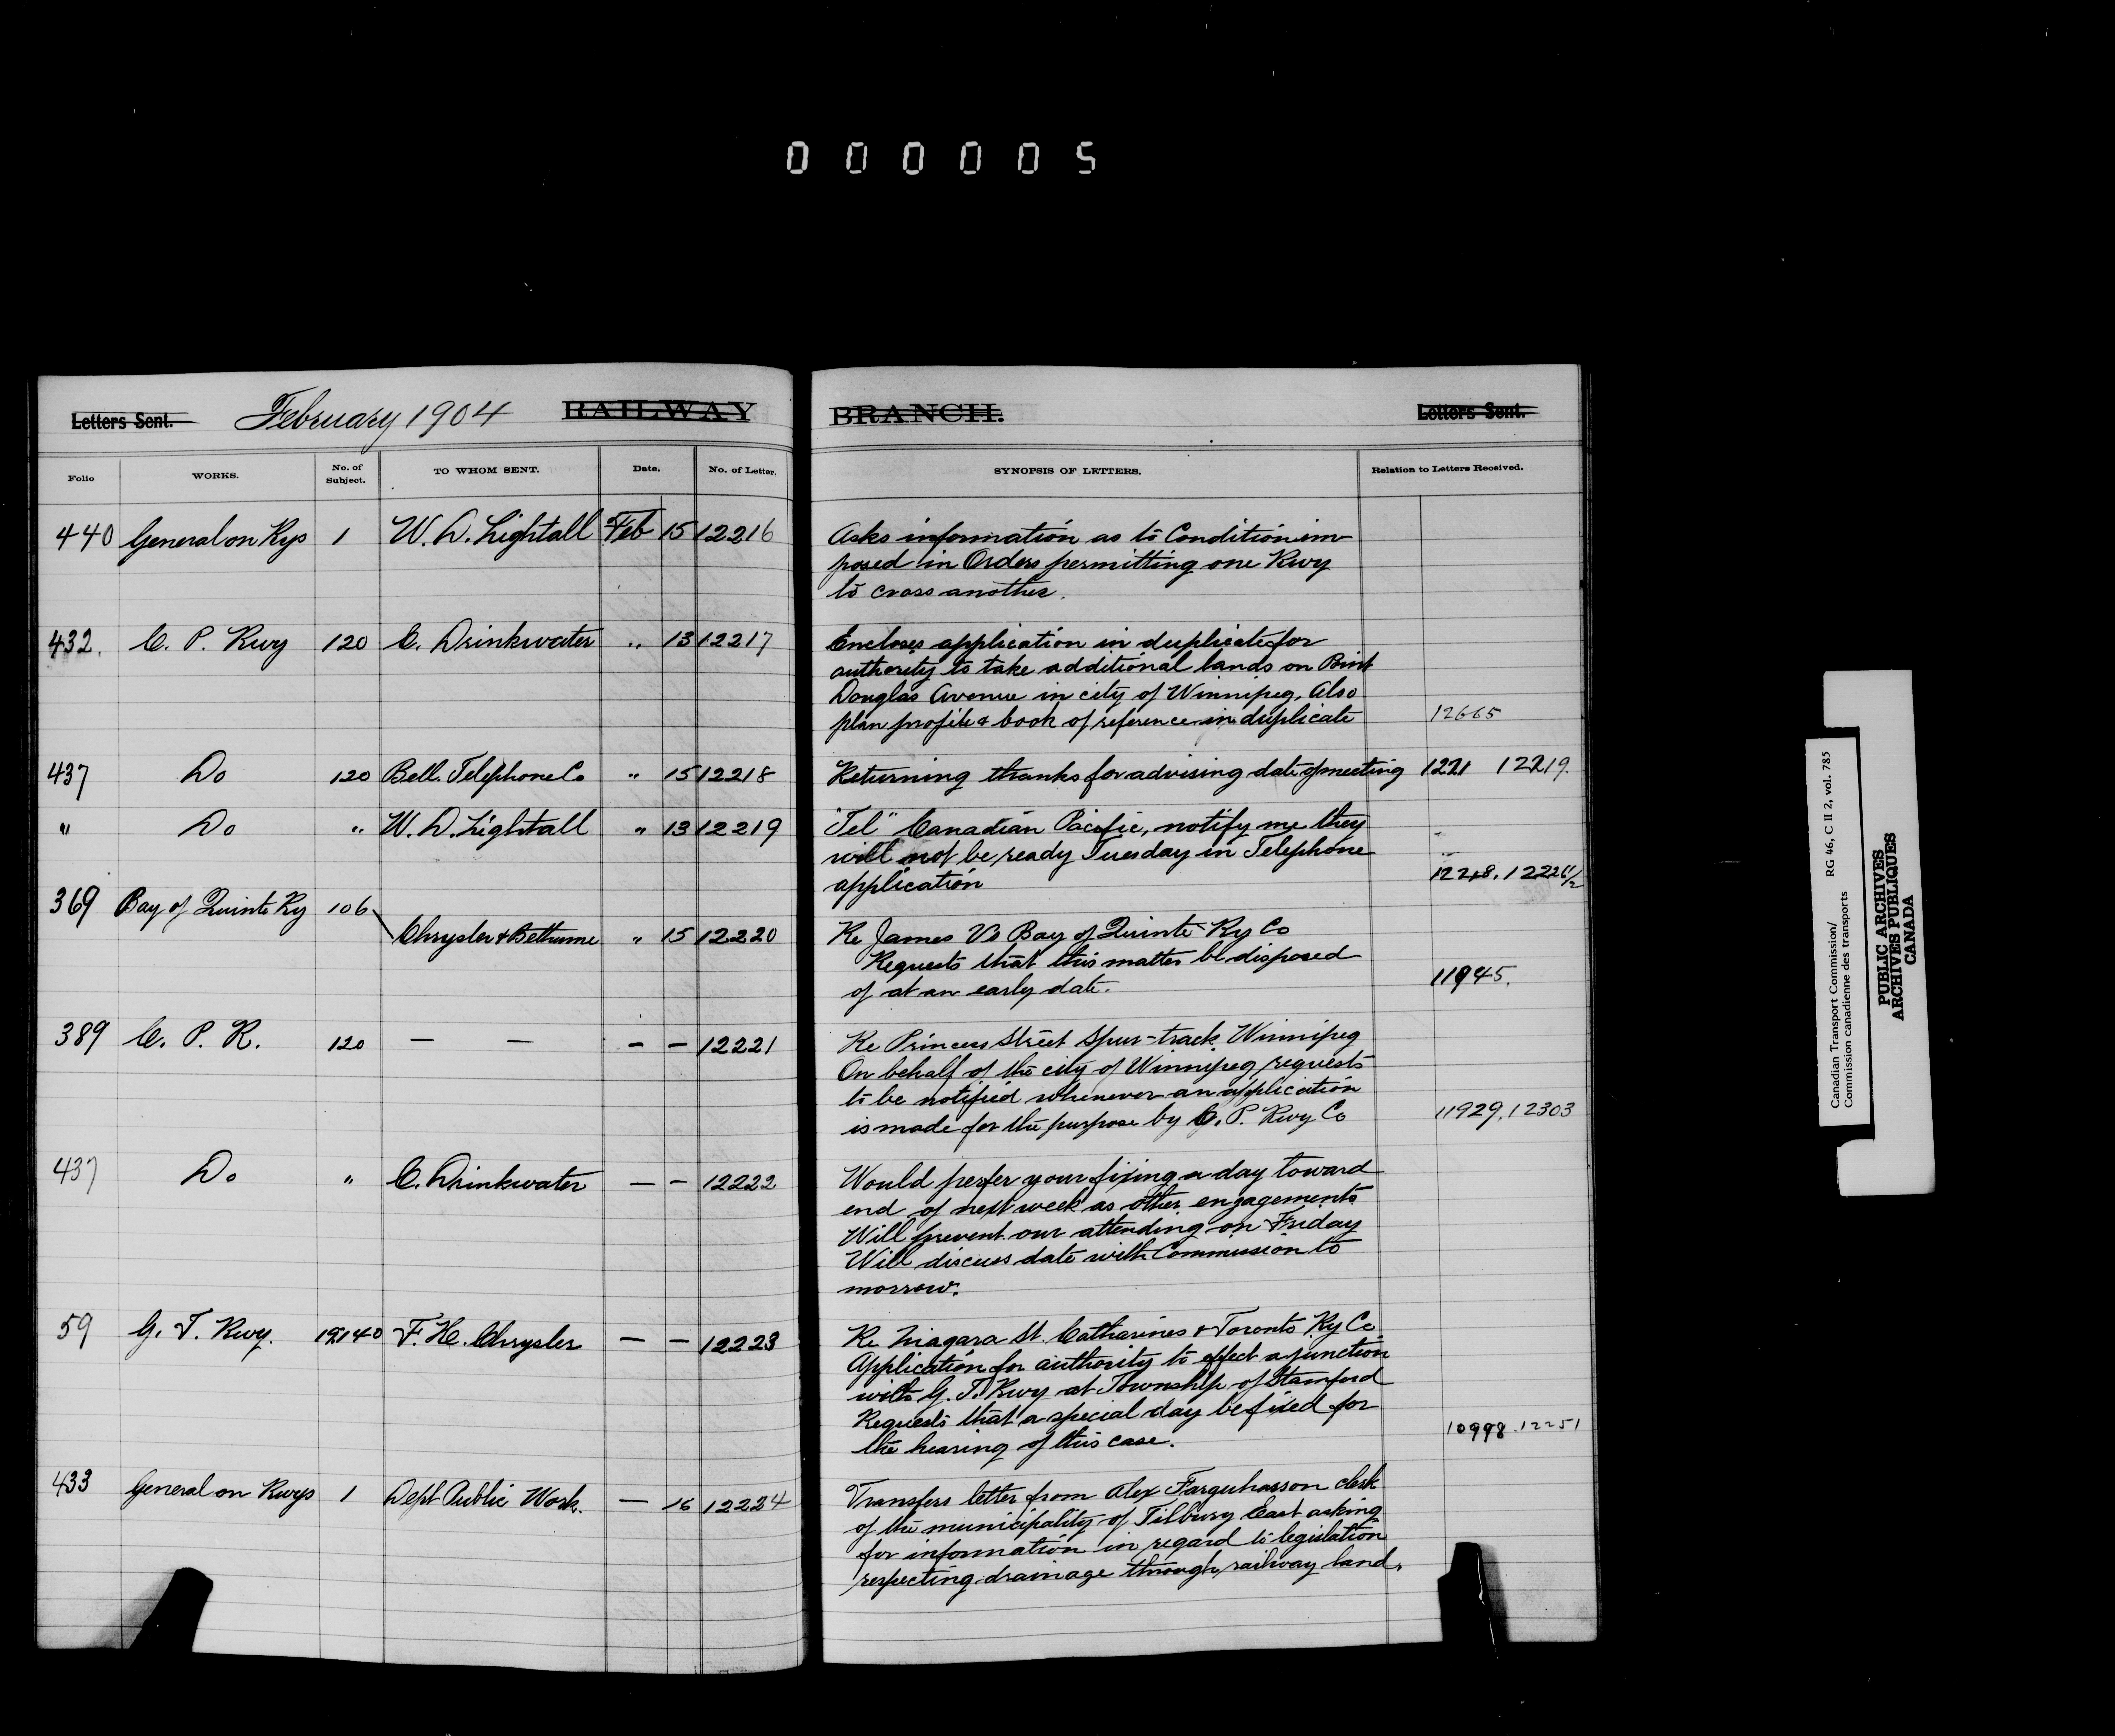 000005
Letters Sent. February 1904 RAILWAY BRANCH. Letters Sent.
Folio WORKS. No. of Subject. TO WHOM SENT. Date. No. of Letter. SYNOPSIS OF LETTERS. Relation to Letters Received.
440 General on Rys 1 W. D. Lightall Feb 15 12216 Asks information as to Condition im-
posed in Orders permitting one Rwy
to cross another.
432. C. P. Rwy 120 C. Drinkwater " 13 12217 Encloses application in duplicate for
authority to take additional lands on Point
Douglas Avenue in city of Winnipeg. Also
plan profile & book of reference in duplicate 12665
437 Do 120 Bell. Telephone Co " 15 12218 Returning thanks for advising date of meeting 1221 12219.
" Do " W. D. Lightall " 13 12219 "Tel" Canadian Pacific, notify me they
will not be ready Tuesday in Telephone
application 12218.
369 Bay of Quinte Ry 106
Chrysler & Bethune " 15 12220 Re James Vs Bay of Quinte Ry Co
Requests that this matter be disposed
of at an early date. 11945.
389 C. P. R. 120 — — — — 12221 Re Princess Street Spur-track Winnipeg
On behalf of the city of Winnipeg requests
to be notified whenever an application
is made for the purpose by C. P. Rwy Co 11929. 12303
437 Do " C. Drinkwater — — 12222 Would perfer your fixing a day toward
end of next week as other engagements
Will prevent our attending on Friday
Will discuss date with Commission to
morrow.
59 G. T. Rwy. F. H. Chrysler — — 12223 Re Niagara St. Catharines & Toronto Ry Co
Application for authority to effect a junction
with G. T. Rwy at Township of Stamford
Requests that a special day be fixed for
the hearing of this case. 10998. 12251
433 General on Rwys 1 Dept Public Work. — 16 12224 Transfers letter from Alex Farguharson clerk
of the municipality of Tilbury East asking
for information in regard to legislation
respecting drainage through railway land.
Canadian Transport Commission/ RG 46, C II 2, vol. 785
Commission canadienne des transports
PUBLIC ARCHIVES
ARCHIVES PUBLIQUES
CANADA